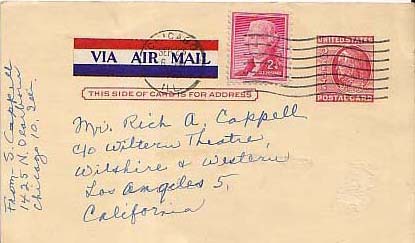 VIA AIR MAIL
CHICAGO
SEP
ILL
2¢
JEFFERSON
UNITED STATES
POSTAL CARD
THIS SIDE OF CARD IS FOR ADDRESS
Mr. Rich A. Cappell
c/o Wiltern Theatre,
Wilshire & Western
Los Angeles 5,
California
From - S. Cappell
1425 N. Dearborn
Chicago 10. Ill.